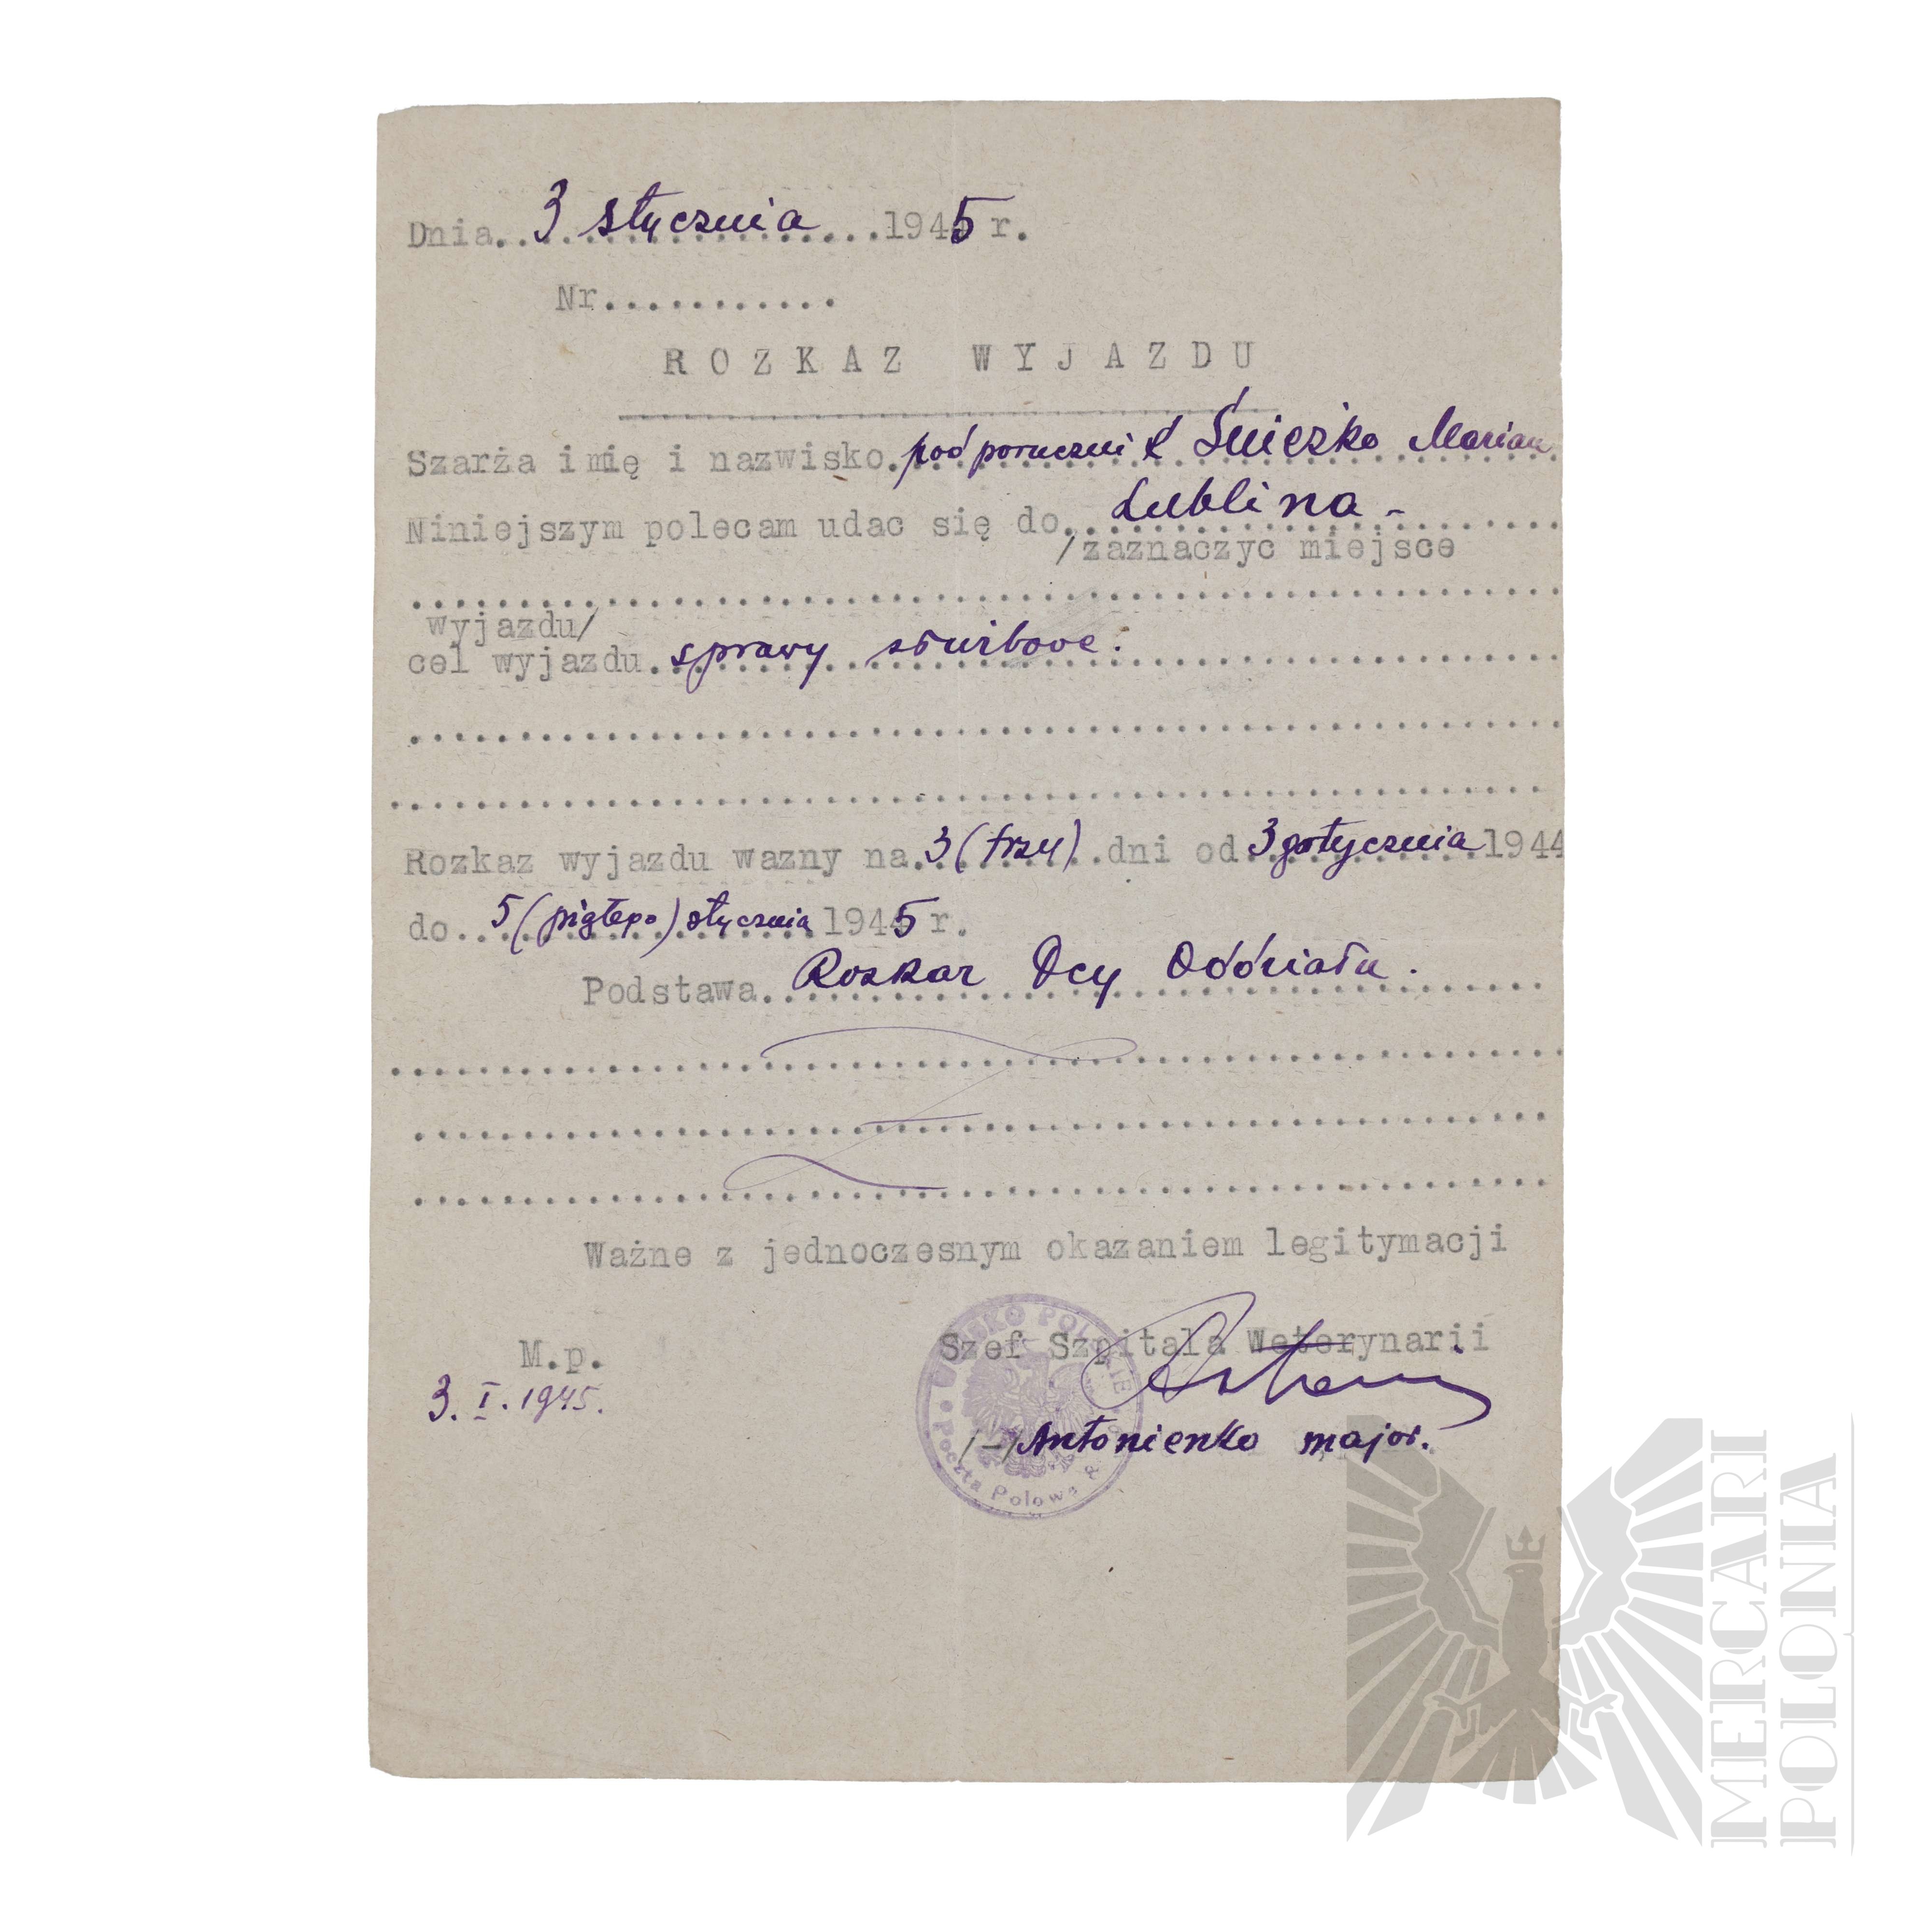 Dnia..3 stycznia....1945 r.
Nr............
ROZKAZ WYJAZDU
Szarża imię i nazwisko.podporucznik Śnieżko Marian
Niniejszym polecam udac się do..Lublina -
/zaznaczyc miejsce
wyjazdu/
cel wyjazdu.sprawy służbowe.
Rozkaz wyjazdu wazny na.3 (trzy)..dni od 3 go stycznia.1944
do..5 (piątego) stycznia 1945 r.
Podstawa..Rozkaz Dcy Oddziału.
Ważne z jednoczesnym okazaniem legitymacji
Szef Szpitala Weterynarii
M.p.
3. I. 1945.
/-/Antonienko major.
WOJSKO POLSKIE
Poczta Polowa
MERCARI
POLONIA